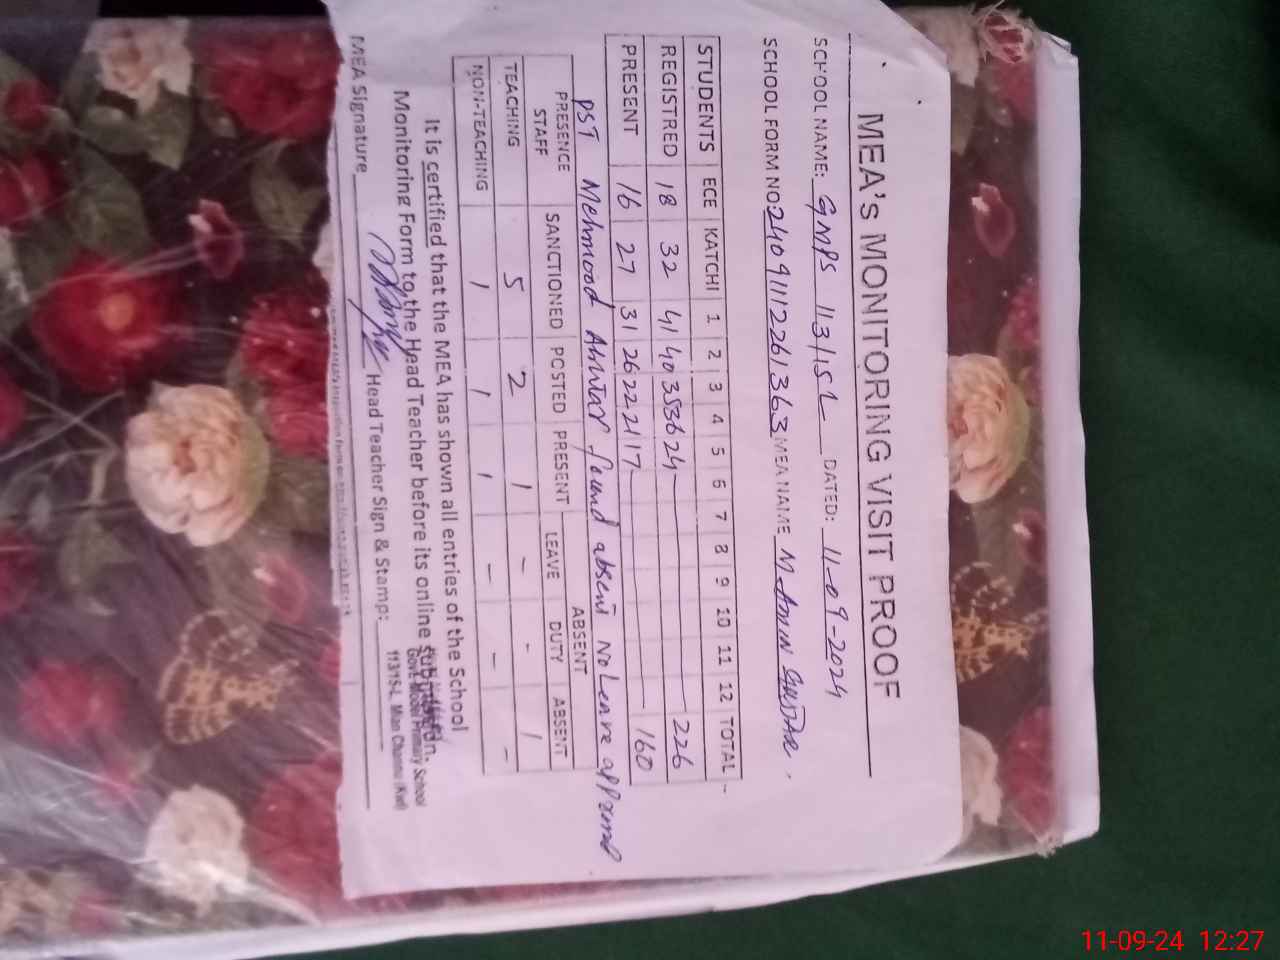 MEA's MONITORING VISIT PROOF
SCHOOL NAME: GMPS 113/15L DATED: 11-09-2024
SCHOOL FORM NO: 24091112261363 MEA NAME M. Amin
STUDENTS ECE KATCHI 1 2 3 4 5 6 7 8 9 10 11 12 TOTAL
REGISTRED 18 32 41 40 35 36 24 226
PRESENT 16 27 31 26 22 21 17 160
PST Mehmood Akhtar found absent No Leave approval
PRESENCE STAFF SANCTIONED POSTED PRESENT ABSENT
LEAVE DUTY ABSENT
TEACHING 5 2 1 - - 1
NON-TEACHING 1 1 1 - - -
It is certified that the MEA has shown all entries of the School
Monitoring Form to the Head Teacher before its online submission.
MEA Signature Head Teacher Sign & Stamp:
Govt. Model Primary School
113/15-L Mian Channu (Kwl)
11-09-24 12:27